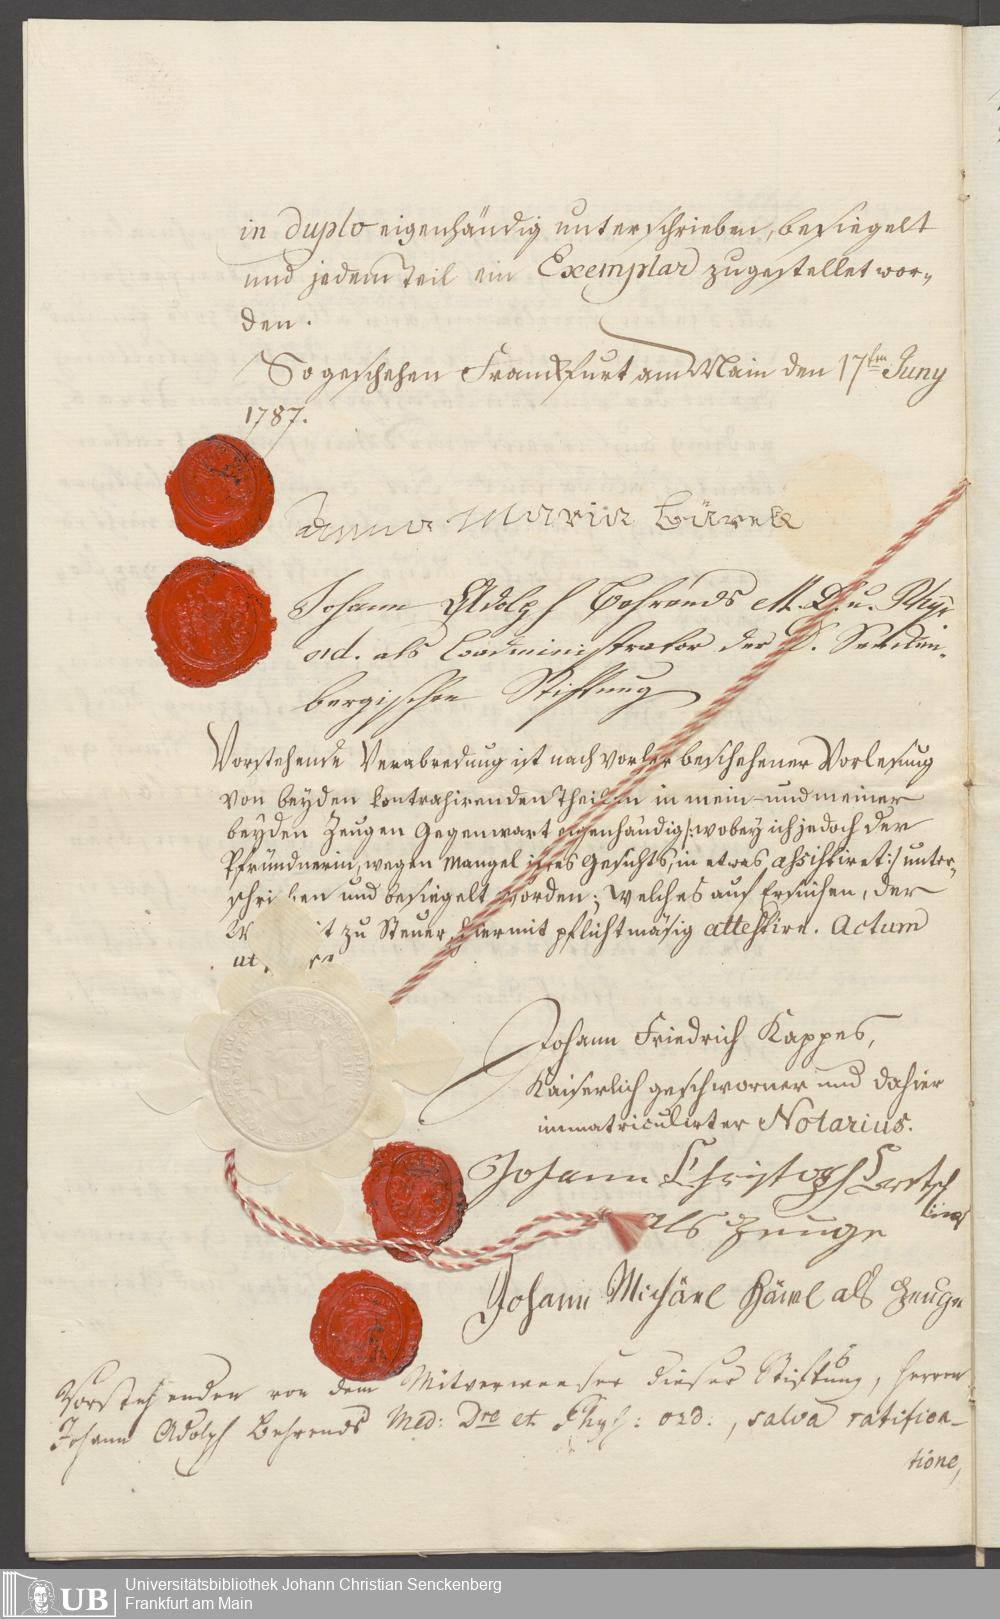 in duplo eigenhändig unterschrieben, besiegelt
und jedem Teil ein Exemplar zugestellet wor-
den.
So geschehen Frankfurt am Main den 17ten Juny
1787.
Anna Maria
Johann Adolph Behrends M. D. u. Phys.
ord. als Coadministrator der D. Sencken-
bergischen Stiftung
Vorstehende Verabredung ist nach vorher beschehener Vorlesung
von beyden kontrahirenden Theilen in mein- und meiner
beyden Zeugen Gegenwart eigenhändig /: wobey ich jedoch der
Pfründnerin, wegen Mangel ihres Gesichts, in etwas assistiret :/ unter-
schrieben und besiegelt worden; welches auf Ersuchen, der
zu Steuer, hiermit pflichtmäsig attestire. Actum
ut
Johann Friedrich Kappes,
Kaiserlich geschworner und dahier
immatriculirter Notarius.
Johann Christoph
als Zeuge
Johann Michael als Zeuge
Vorstehenden von dem Mitverweeser dieser Stiftung, Herrn
Johann Adolph Behrends Med: Dre et Phys: ord:, salva ratifica-
tione,
UB
Universitätsbibliothek Johann Christian Senckenberg
Frankfurt am Main